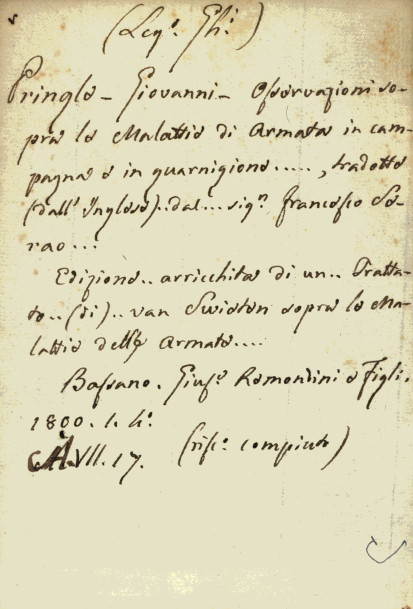 (Leg.ᵒ Gh.ⁱ)
Pringle - Giovanni - Osservazioni so-
pra le Malattie di Armata in cam-
pagna e in guarnigione....., tradotte
(dall' Inglese)..dal...sigʳ. Francesco Se-
rao...
Edizione.. arricchita di un.. Tratta-
to..(di)..van Swieten sopra le Ma-
lattie delle Armate....
Bassano. Giusᵉ. Remondini e Figli.
1800. 1. 4ᵒ.
A.VII.17. (rifᵒ. compiuto)